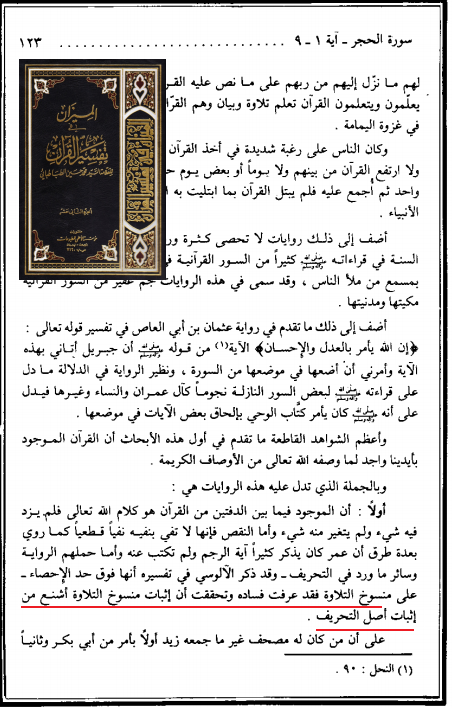 سورة الحجر ـ آية ١ ـ ٩ . . . . . . . . . . . . . . . . . . . . . . . . . . . . ١٢٣
لهم ما نزّل إليهم من ربهم على ما نص عليه
يعلّمون ويتعلمون القرآن تعلم تلاوة وبيان وهم
في غزوة اليمامة .
وكان الناس على رغبة شديدة في أخذ القرآن
ولا ارتفع القرآن من بينهم ولا يوماً أو بعض يوم
واحد ثم أجمع عليه فلم يبتل القرآن بما ابتليت به
الأنبياء .
أضف إلى ذلك روايات لا تحصى كثرة
السنة في قراءاته ﷺ كثيراً من السور القرآنية
بمسمع من ملأ الناس ، وقد سمى في هذه الروايات جم غفير من السور القرآنية
مكيتها ومدنيتها .
أضف إلى ذلك ما تقدم في رواية عثمان بن أبي العاص في تفسير قوله تعالى :
﴿إن الله يأمر بالعدل والإحسان﴾ الآية(١) من قوله ﷺ أن جبريل أتاني بهذه
الآية وأمرني أن أضعها في موضعها من السورة ، ونظير الرواية في الدلالة ما دل
على قراءته ﷺ لبعض السور النازلة نجوماً كآل عمران والنساء وغيرها فيدل
على أنه ﷺ كان يأمر كتّاب الوحي بإلحاق بعض الآيات في موضعها .
وأعظم الشواهد القاطعة ما تقدم في أول هذه الأبحاث أن القرآن الموجود
بأيدينا واجد لما وصفه الله تعالى من الأوصاف الكريمة .
وبالجملة الذي تدل عليه هذه الروايات هي :
أولاً : أن الموجود فيما بين الدفتين من القرآن هو كلام الله تعالى فلم يزد
فيه شيء ولم يتغير منه شيء وأما النقص فإنها لا تفي بنفيه نفياً قطعياً كما روي
بعدة طرق أن عمر كان يذكر كثيراً آية الرجم ولم تكتب عنه وأما حملهم الرواية
وسائر ما ورد في التحريف ـ وقد ذكر الآلوسي في تفسيره أنها فوق حد الإحصاء ـ
على منسوخ التلاوة فقد عرفت فساده وتحققت أن إثبات منسوخ التلاوة أشنع من
إثبات أصل التحريف .
على أن من كان له مصحف غير ما جمعه زيد أولاً بأمر من أبي بكر وثانياً
(١) النحل : ٩٠ .
الميزان
في
تفسير القرآن